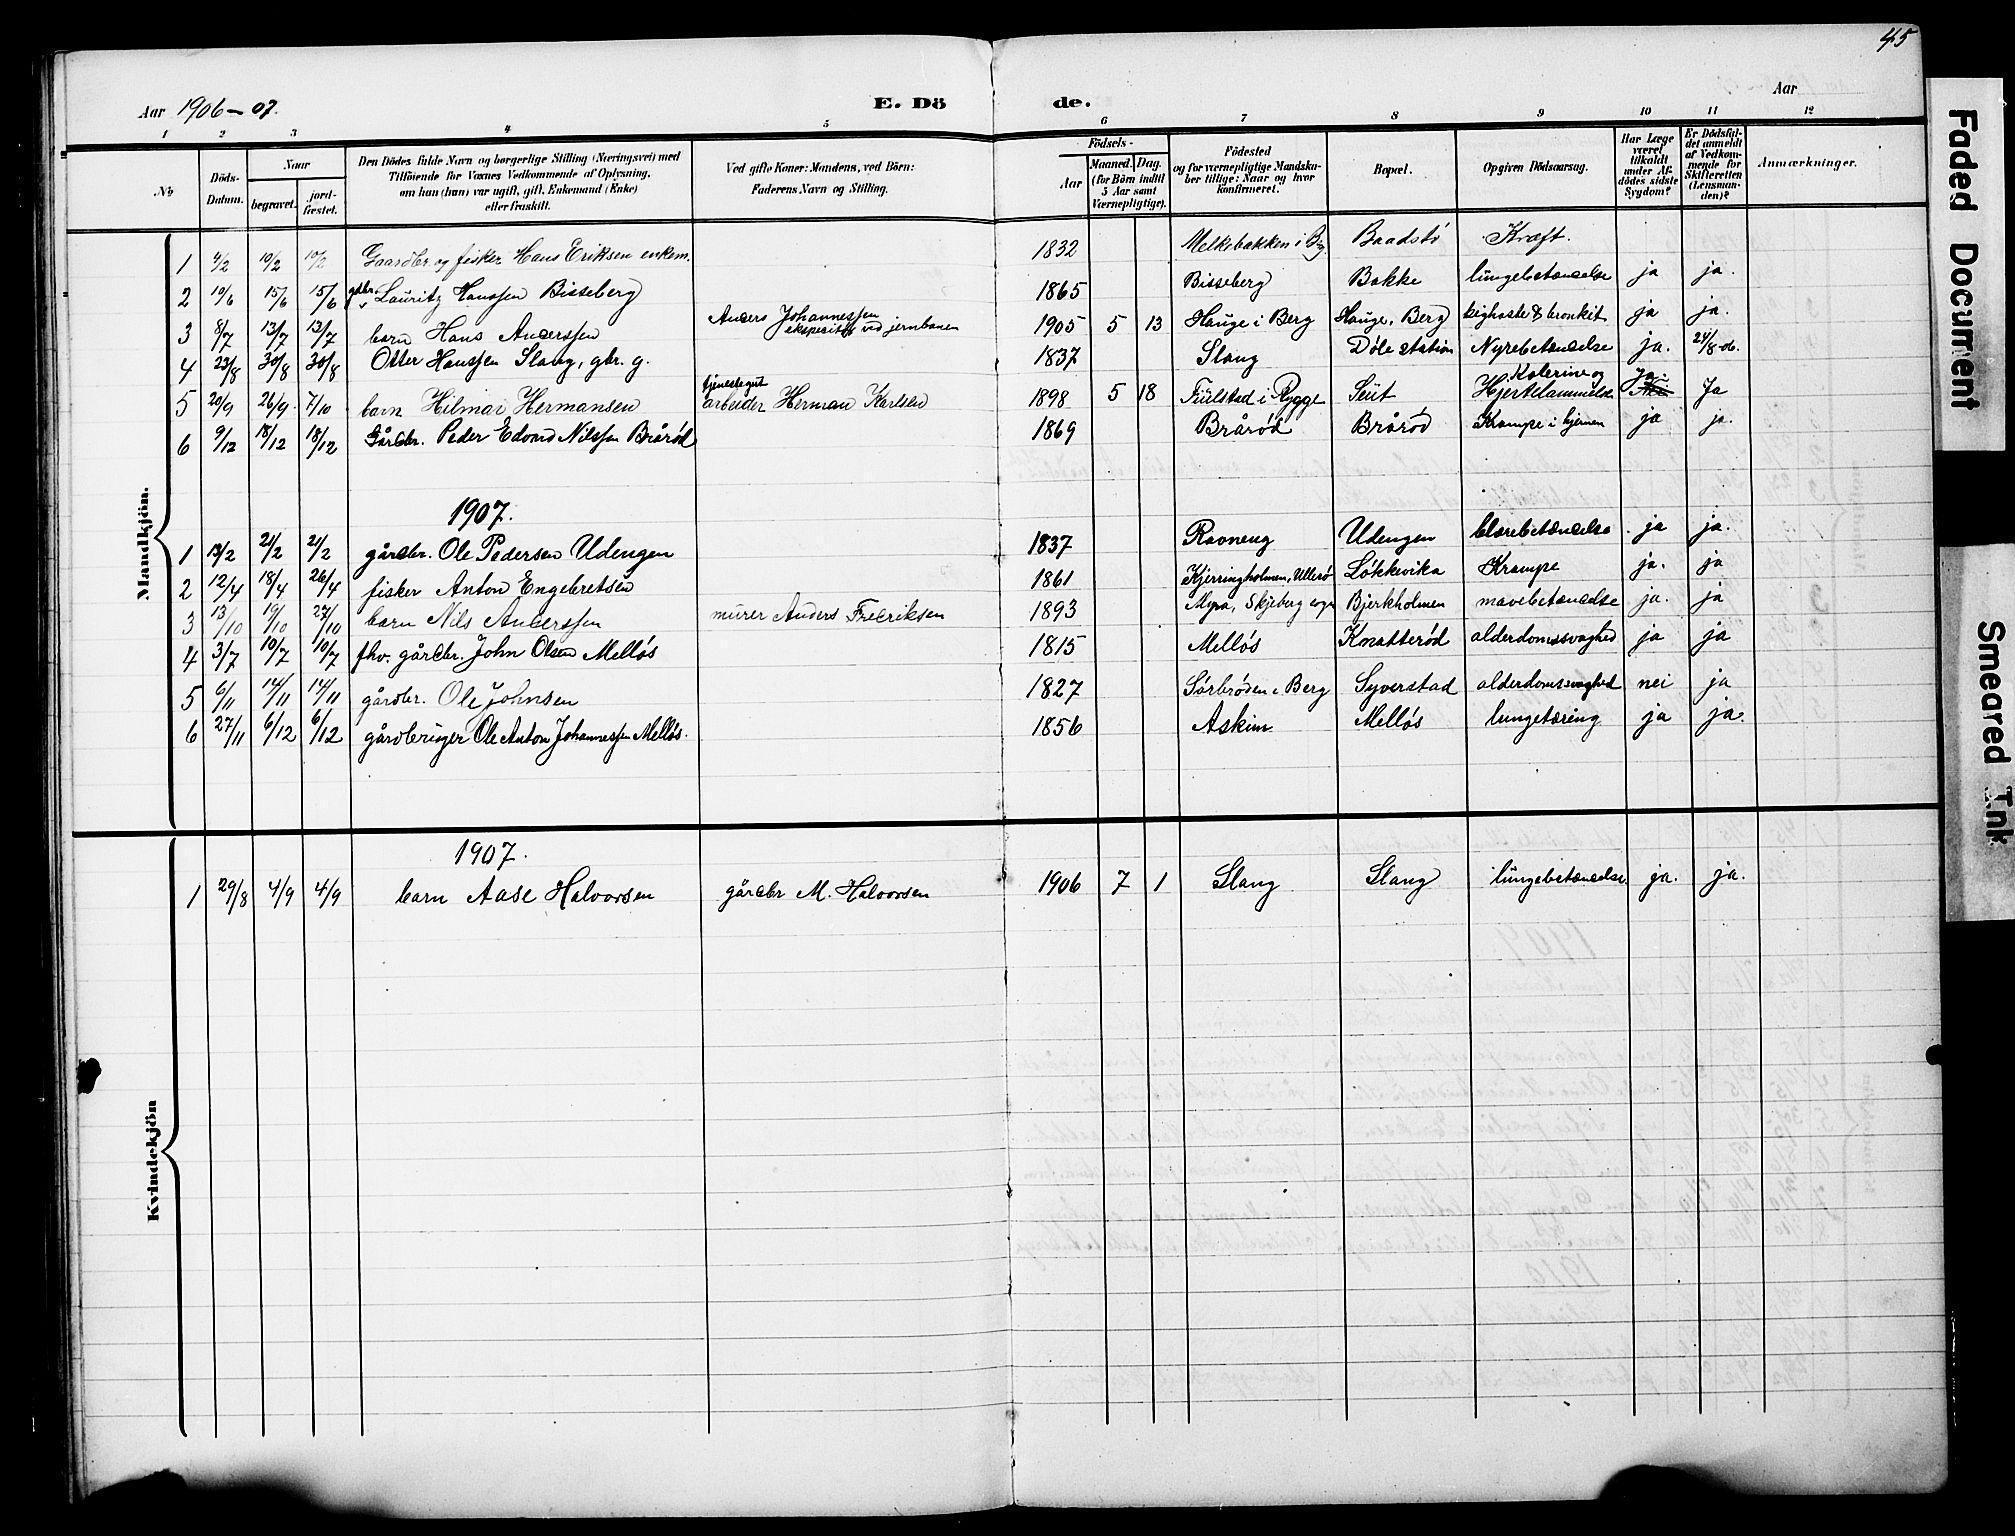 45
Aar 1906-07.
E. Döde.
Aar
1 2 3 4 5 6 7 8 9 10 11 12
No
Döds-Datum.
Naar
begravet.
jord-fæstet.
Den Dödes fulde Navn og borgerlige Stilling (Næringsvei) med
Tilföiende for Voxnes Vedkommende af Oplysning,
om han (hun) var ugift, gift, Enkemand (Enke)
eller fraskilt.
Ved gifte Koner: Mandens, ved Börn:
Faderens Navn og Stilling.
Födsels-
Aar
Maaned. Dag.
(for Börn indtil 5 Aar samt Værnepligtige).
Födested
og for værnepligtige Mandskaber tillige: Naar og hvor konfirmeret.
Bopæl.
Opgiven Dödsaarsag.
Har Læge været tilkaldt under Afdödes sidste Sygdom?
Er Dödsfaldet anmeldt af Vedkommende for Skifteretten (Lensmanden)?
Anmærkninger.
Mandkjön.
1 4/2 10/2 10/2 Gaardbr og fisker Hans Eriksen enkem. 1832 Melkebakken i Bg Baadstö Kræft.
2 10/6 15/6 15/6 gdbr. Lauritz Hanssen Bisseberg 1865 Bisseberg Bakke lungebetændelse ja ja.
3 8/7 13/7 13/7 barn Hans Anderssen Anders Johannessen ekspeditör ved jernbanen 1905 5 13 Hauge i Berg Hauge, Berg kighoste & bronkit ja ja.
4 23/8 30/8 30/8 Otter Hanssen Slang, gbr. g. 1837 Slang Döle station Nyrebetændelse ja. 24/8 do.
5 20/9 26/9 7/10 barn Hilmar Hermansen tjenestegut arbeider Herman Karlsen 1898 5 18 Fuelstad i Rygge Seut Kolerine og Hjertelammelse Ja. Ja
6 9/12 18/12 18/12 Gårdbr. Peder Edvard Nilssen Brårød 1869 Brårød Brårød Krampe i hjernen ja ja.
1907.
1 13/2 21/2 21/2 gårdbr. Ole Pedersen Udengen 1837 Ravneng Udengen blærebetændelse ja ja.
2 12/4 18/4 26/4 fisker Anton Engebretsen 1861 Kjerringholmen, Ullerø Løkkevika Krampe ja. ja
3 13/10 19/10 27/10 barn Nils Anderssen murer Anders Fredriksen 1893 Myra, Skjeberg sogn Bjerkholmen mavebetændelse ja. ja
4 3/7 10/7 10/7 fhv. gårdbr. John Olsen Melløs 1815 Melløs Knatterød alderdomssvaghed ja ja
5 6/11 14/11 14/11 gårdbr. Ole Johnsen 1827 Sørbrøden i Berg Syverstad alderdomssvaghed nei ja
6 27/11 6/12 6/12 gårdbruger Ole Anton Johannessen Melløs. 1856 Askim Melløs lungetæring ja ja
Kvindekjön
1907.
1 29/8 4/9 4/9 barn Aase Halvorsen gårdbr M. Halvorsen 1906 7 1 Slang Slang lungebetændelse ja. ja.
Faded Document
Smeared Ink